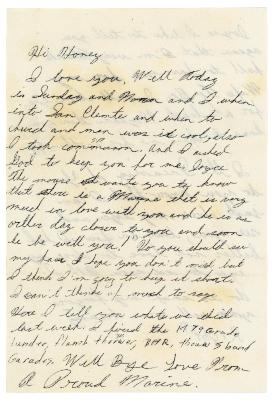 Hi Honey
I love you. Well today
is Sunday and Norman and I when
into San Clemte and when to
church and man was it cool, also
I took communion. And I asked
God to keep you for me. Joyce
the marine wants you to know
that there is a Marine that is very
much in love with you and he is one
other day closer to you and soon
he be well you! You should see
my hair I hope you don't mind, but
I think I'm going to keep it short.
I can't think of much to say.
Here I tell you what we did
last week. I fired the M79 Grade
lundor, Flamth thrower, BAR, throw 5 hand
Garades. Well Bye Love From
A Proud Marine.